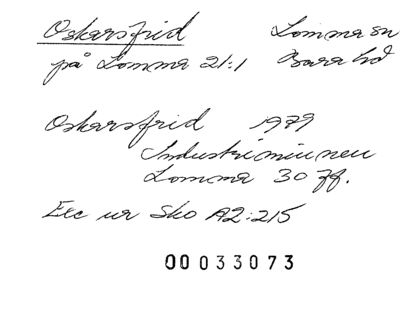 Oskarsfrid Lomma sn
på Lomma 21:1 Bara hd
Oskarsfrid 1979
Industriminnen
Lomma 30 ff.
Exc ur Sko A2:215
00033073